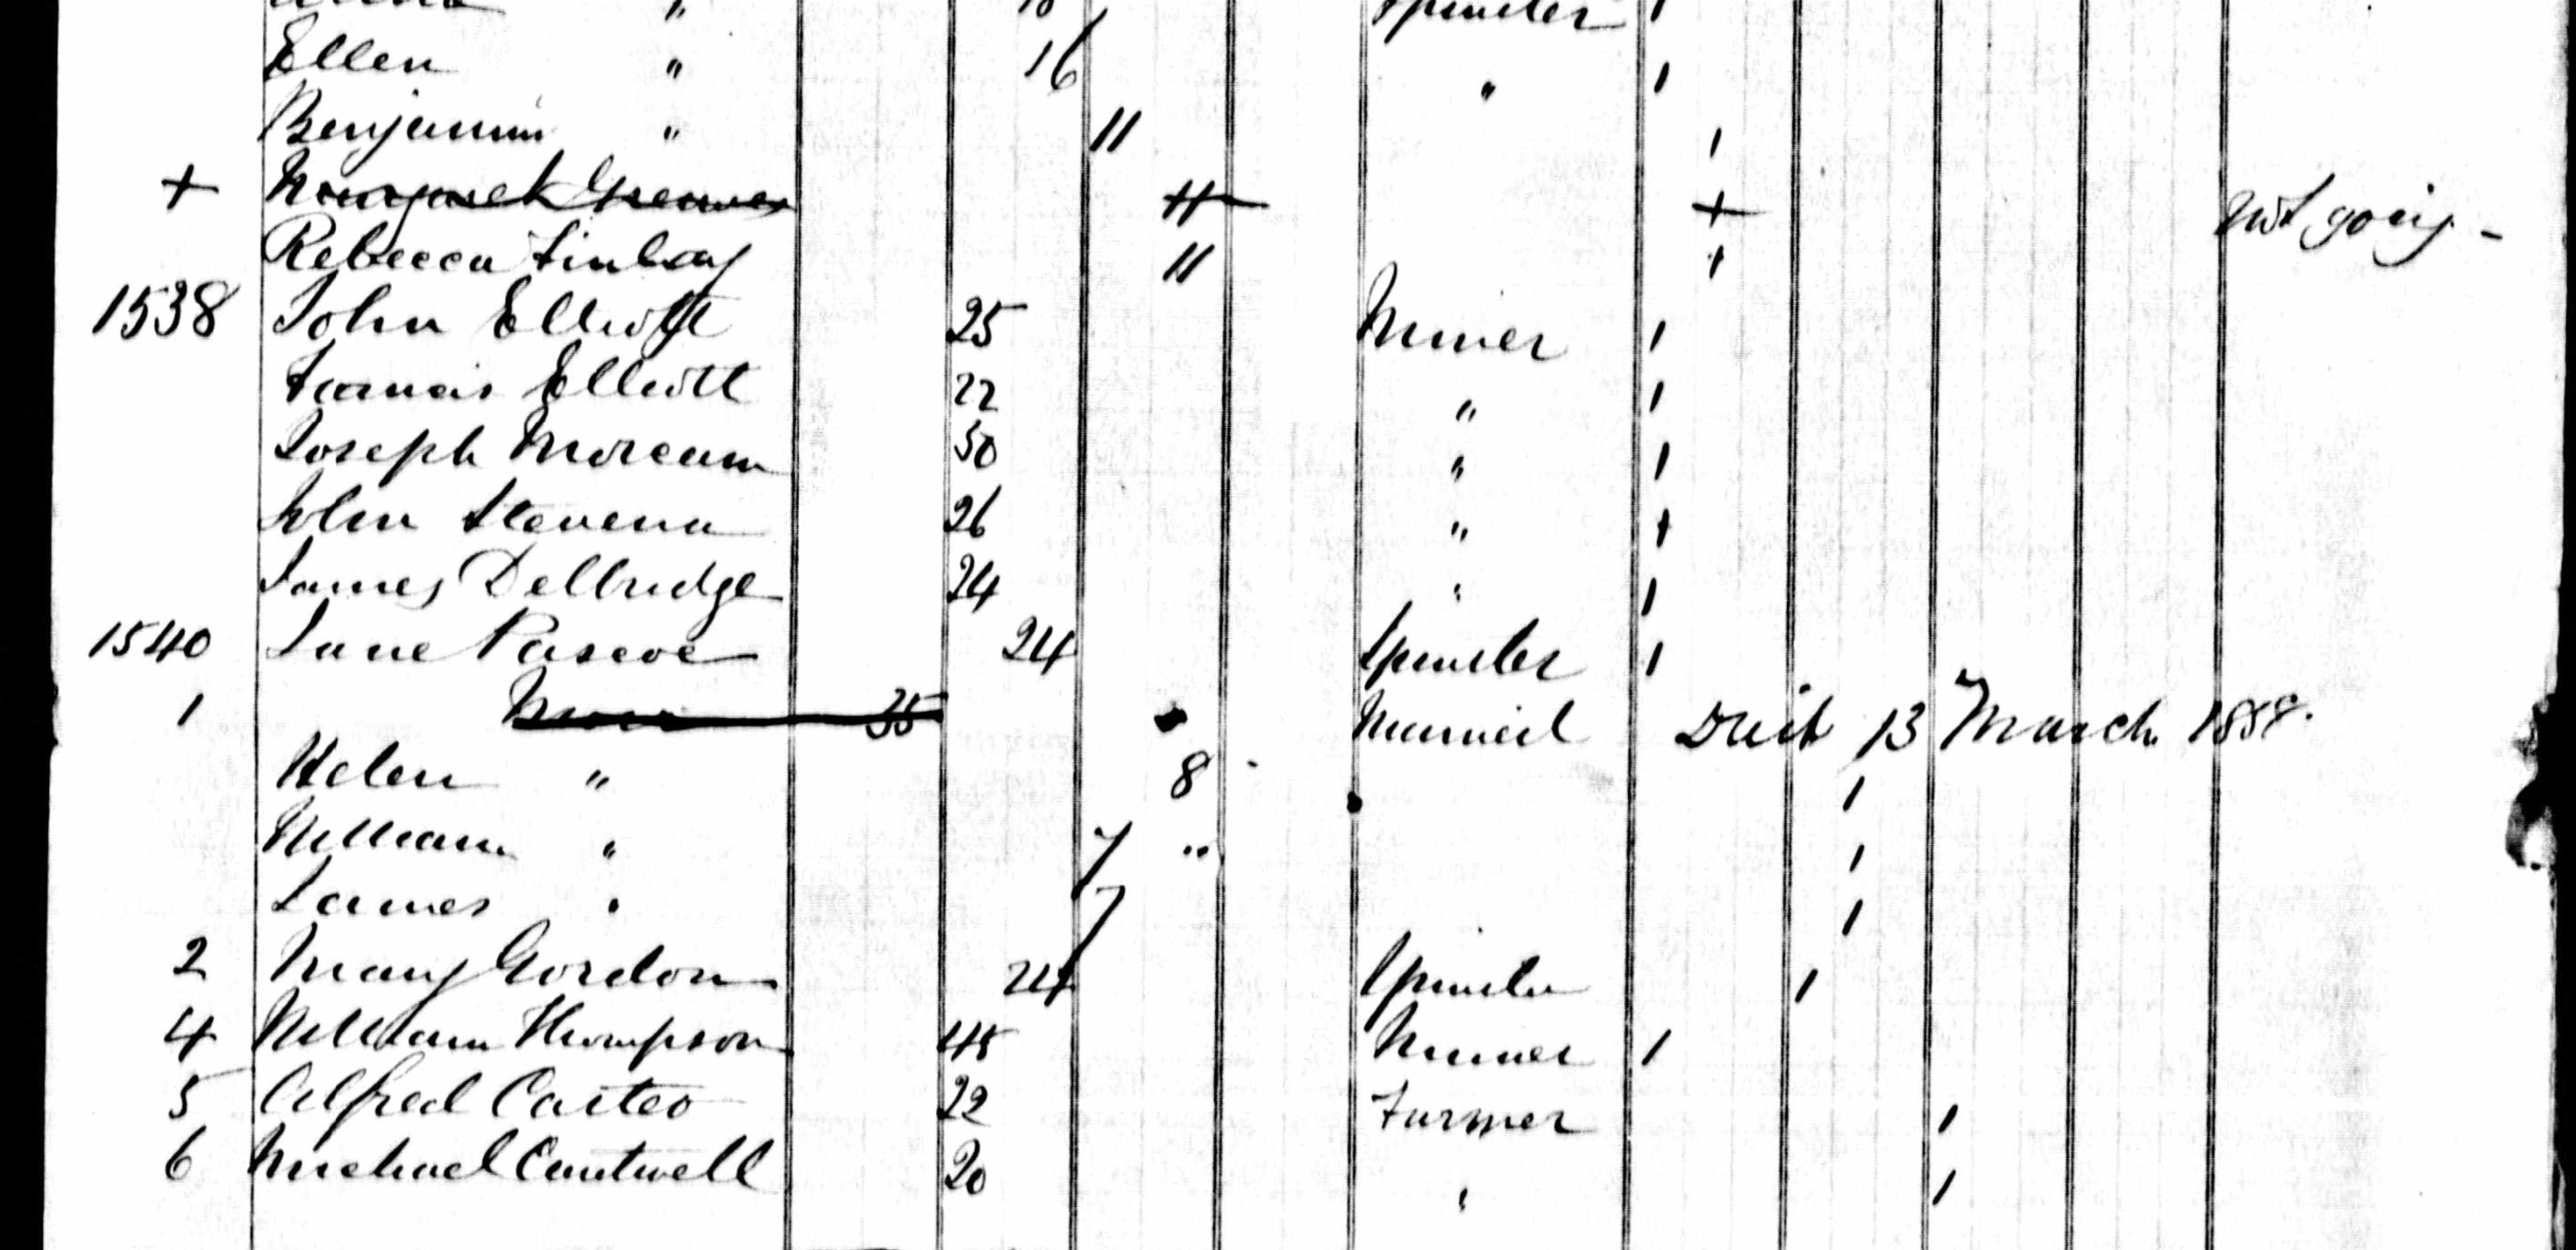 " Spinster 1
Ellen " 16 " 1
Benjamin " 11 1
+ Margaret 11 + not going -
Rebecca Finlay 11 1
1538 John Elliott 25 Miner 1
Francis Elliott 22 " 1
Joseph 50 " 1
John Stevens 26 " 1
James Delbridge 24 " 1
1540 Jane Pascoe 24 Spinster 1
1 35 Married Died 13 March
Helen " 8 1
William " 7 " 1
James " 7 1
2 Mary Gordon 24 Spinster 1
4 William Thompson 45 Miner 1
5 Alfred Carter 22 Farmer 1
6 Michael Cantwell 20 " 1